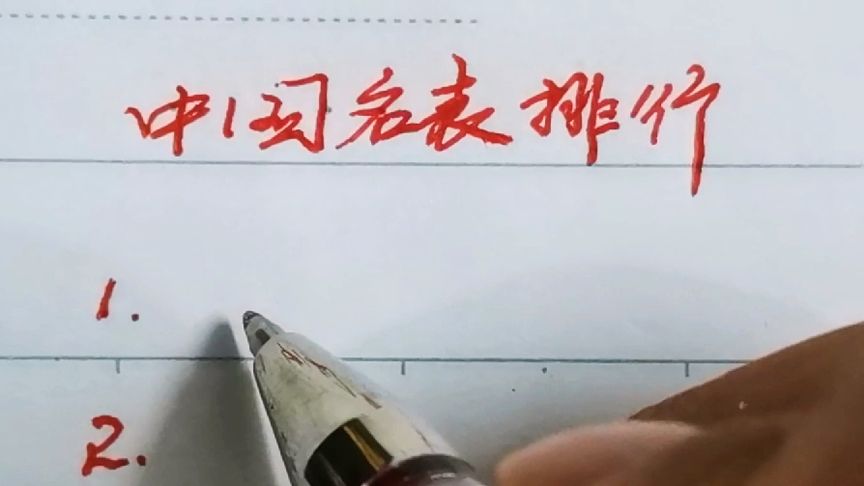 中国名表排行
1.
2.